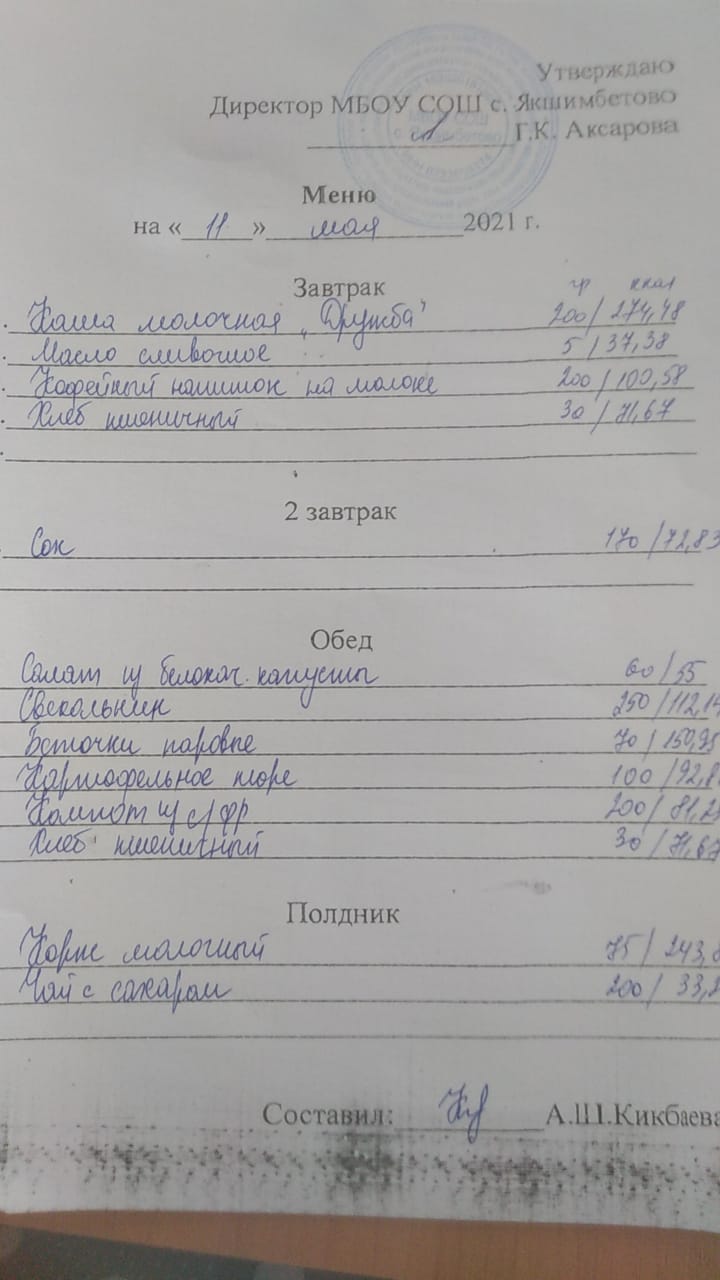 Утверждаю
Директор МБОУ СОШ с. Якшимбетово
Г.К. Аксарова
Меню
на « 11 » мая 2021 г.
Завтрак гр ккал
Каша молочная „Дружба" 200/274,48
Масло сливочное 5/37,38
Кофейный напиток на молоке 200/100,58
Хлеб пшеничный 30/71,67
2 завтрак
Сок 170/72,83
Обед
Салат из белокач. капусты 60/55
Свекольник 250/112,14
Биточки паровые 70/150,95
Картофельное пюре 100/92,8
Компот из с/фр 200/81,2
Хлеб пшеничный 30/71,67
Полдник
Корж молочный 75/243,8
Чай с сахаром 200/33,2
Составил: А.Ш.Кикбаева